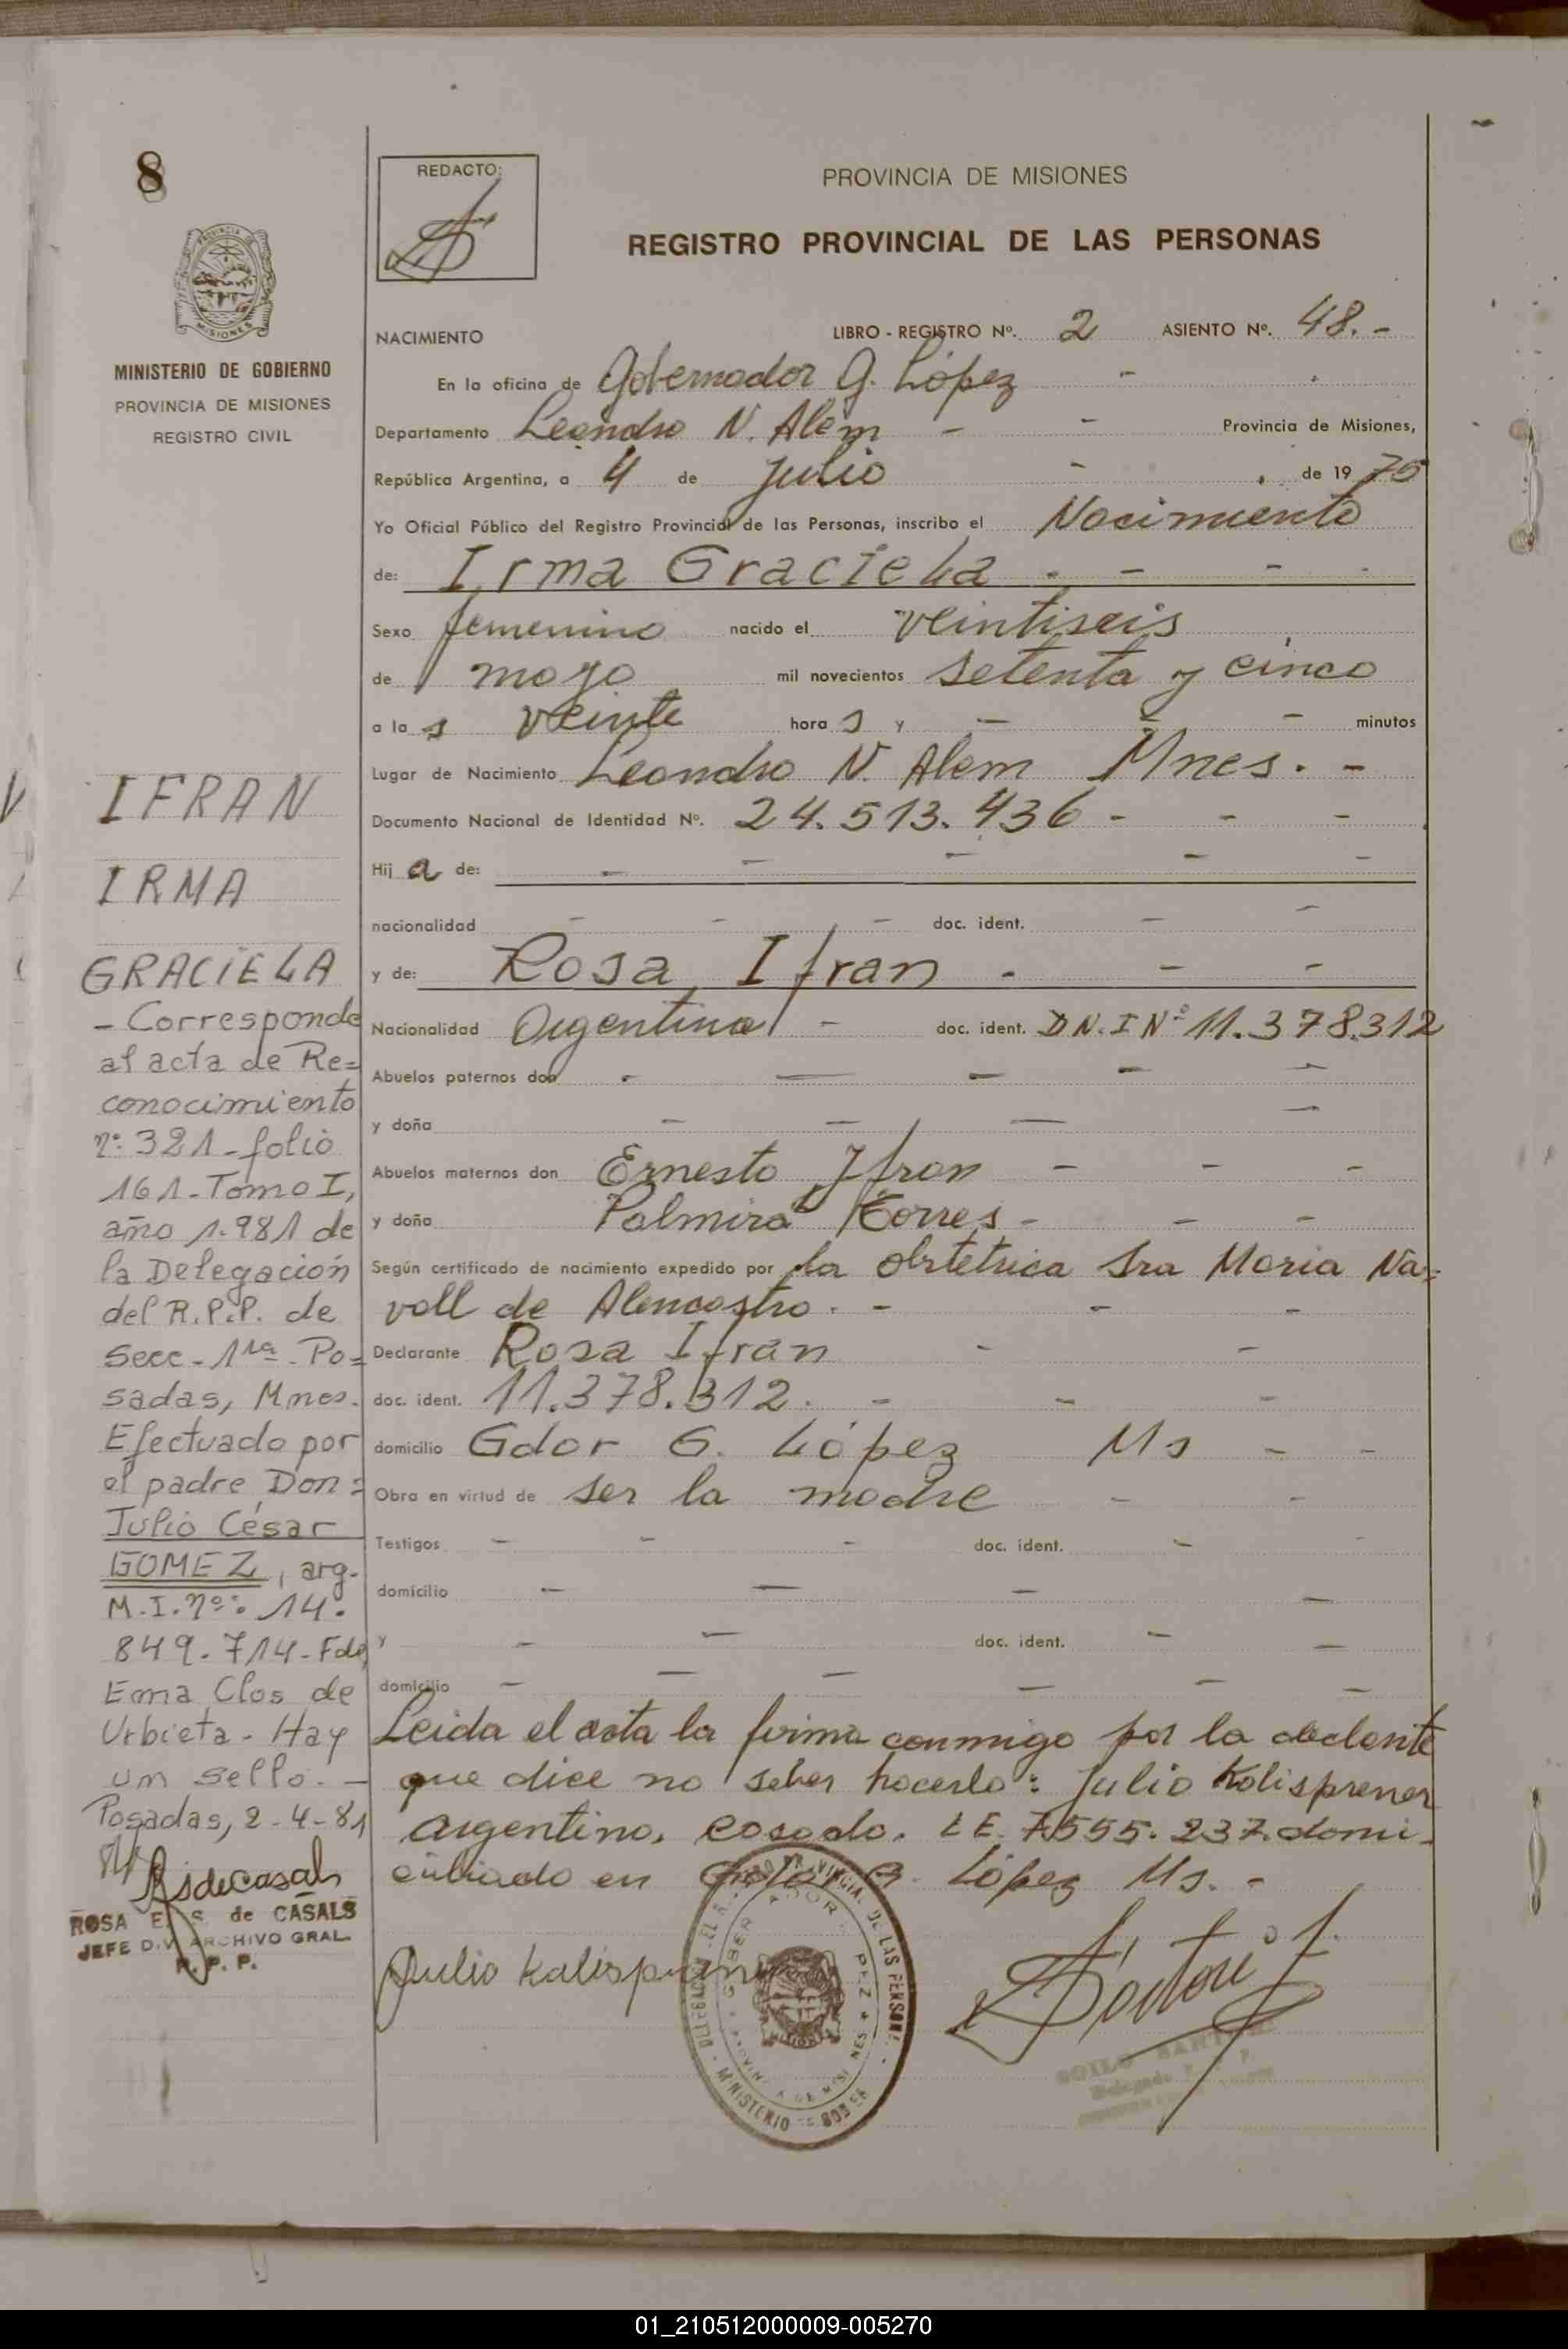 8
REDACTO:
PROVINCIA DE MISIONES
REGISTRO PROVINCIAL DE LAS PERSONAS
MINISTERIO DE GOBIERNO
PROVINCIA DE MISIONES
REGISTRO CIVIL
NACIMIENTO LIBRO - REGISTRO Nº. 2 ASIENTO Nº. 48. -
En la oficina de Gobernador G. López -
Departamento Leandro N. Alem - - Provincia de Misiones,
República Argentina, a 4 de Julio - de 1975
Yo Oficial Público del Registro Provincial de las Personas, inscribo el Nacimiento
de: Irma Graciela - - -
Sexo femenino nacido el veintiseis
de mayo mil novecientos setenta y cinco
a las veinte horas y - - - minutos
Lugar de Nacimiento Leandro N. Alem Mnes. -
Documento Nacional de Identidad Nº. 24.513.436 - - -
Hija de: - - - - -
nacionalidad - - - doc. ident. - -
y de: Rosa Ifran - - -
Nacionalidad Argentina - doc. ident. D.N.I Nº 11.378.312
Abuelos paternos don - - - - -
y doña - - - -
Abuelos maternos don Ernesto Ifran - - -
y doña Palmira Torres - - -
Según certificado de nacimiento expedido por la obstetrica Sra Maria Na=
voll de Alencastro. - - -
Declarante Rosa Ifran - -
doc. ident. 11.378.312. - - -
domicilio Gdor G. López Ms - -
Obra en virtud de ser la madre - -
Testigos - - - doc. ident. - -
domicilio - - - -
y - - doc. ident. - -
domicilio - - - - - -
Leida el acta la firma conmigo por la declante
que dice no saber hacerlo: Julio Kolisprener
argentino, casado. L E. 7.555.237. domi-
ciliado en Gdor G. López Ms. -
Julio Kalisprener
IFRAN
IRMA
GRACIELA
- Corresponde
al acta de Re=
conocimiento
nº 321-folio
161-Tomo I,
año 1.981 de
la Delegación
del R.P.P. de
Secc-1ra-Po=
sadas, Mnes.
Efectuado por
el padre Don=
Julio César
GOMEZ, arg-
M.I.nº: 14.
849.714-Fdo,
Ema Clos de
Urbieta-Hay
un sello. -
Posadas, 2-4-81
ROSA E. S. de CASALS
JEFE DIV ARCHIVO GRAL.
R. P. P.
MINISTERIO DE GOB
01_210512000009-005270